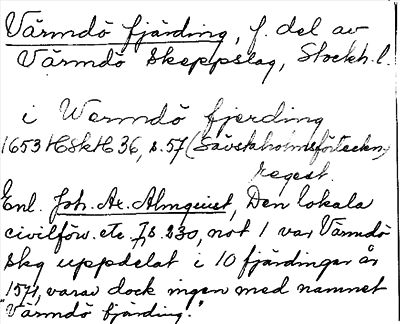 Värmdö fjärding, f. del av
Värmdö Skeppslag, Stockh. l.
i Wermdö fjerding
1653 HSkH 36, s. 57 (Sävstaholmsförteckn.)
regest.
Enl. Joh. Ax. Almquist, Den lokala
civilförv. etc I, s. 230, not 1 var Värmdö
Skg uppdelat i 10 fjärdingar år
1571, varav dock ingen med namnet
"Värmdö fjärding."